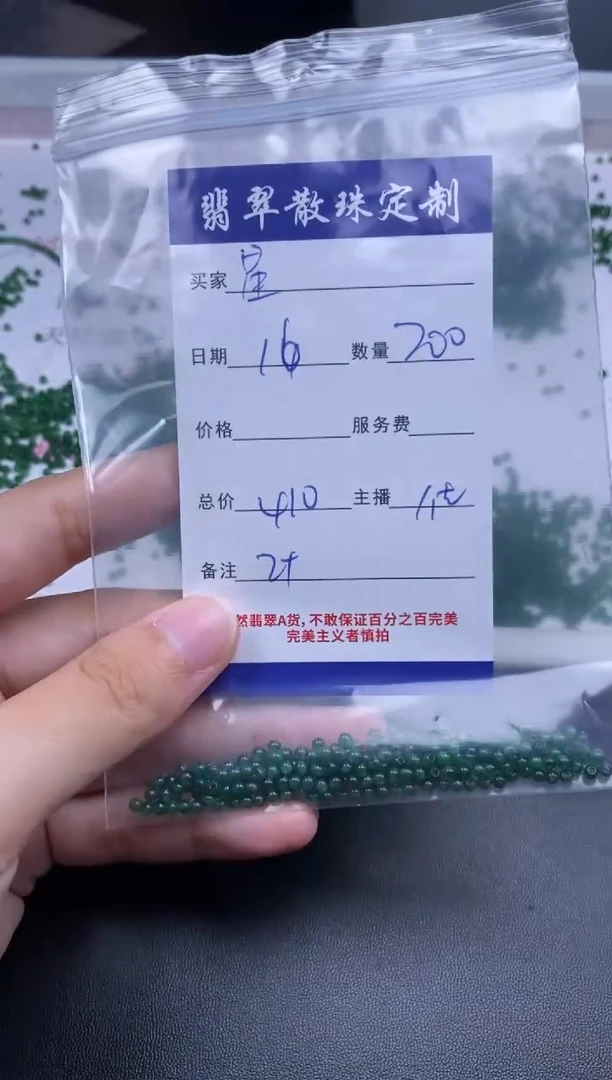 翡翠散珠定制
买家 星
日期 16 数量 200
价格 服务费
总价 410 主播
备注 2+
然翡翠A货,不敢保证百分之百完美
完美主义者慎拍